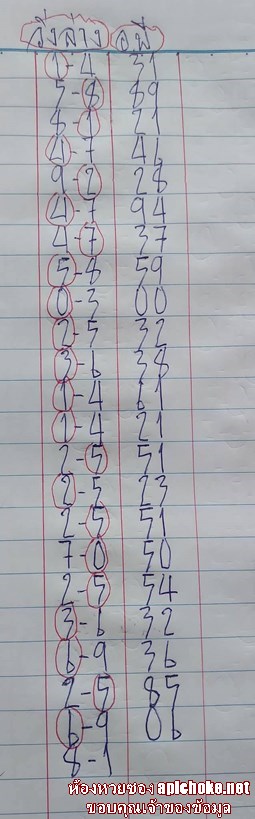 วิ่งล่าง อพี่
1-4 31
5-8 89
8-1 21
4-7 46
9-2 28
4-7 94
4-7 37
5-8 59
0-3 00
2-5 32
3-6 38
1-4 61
1-4 21
2-5 51
2-5 23
2-5 51
7-0 50
2-5 54
3-6 32
6-9 36
2-5 85
6-9 06
8-1
ห้องหวยซอง apichoke.net
ขอบคุณเจ้าของข้อมูล